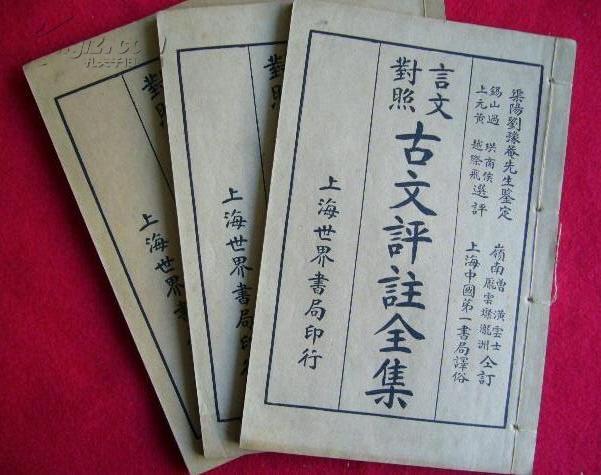 渠陽劉豫菴先生鑒定
錫山過 珙商侯
上元黃 越際飛
選評
嶺南曾 潢雲士
仝訂
上海中國第一書局譯俗
言文
對照
古文評註全集
上海世界書局印行
對照
上海世界書局印行
對照
上海世界書局印
孔夫子旧